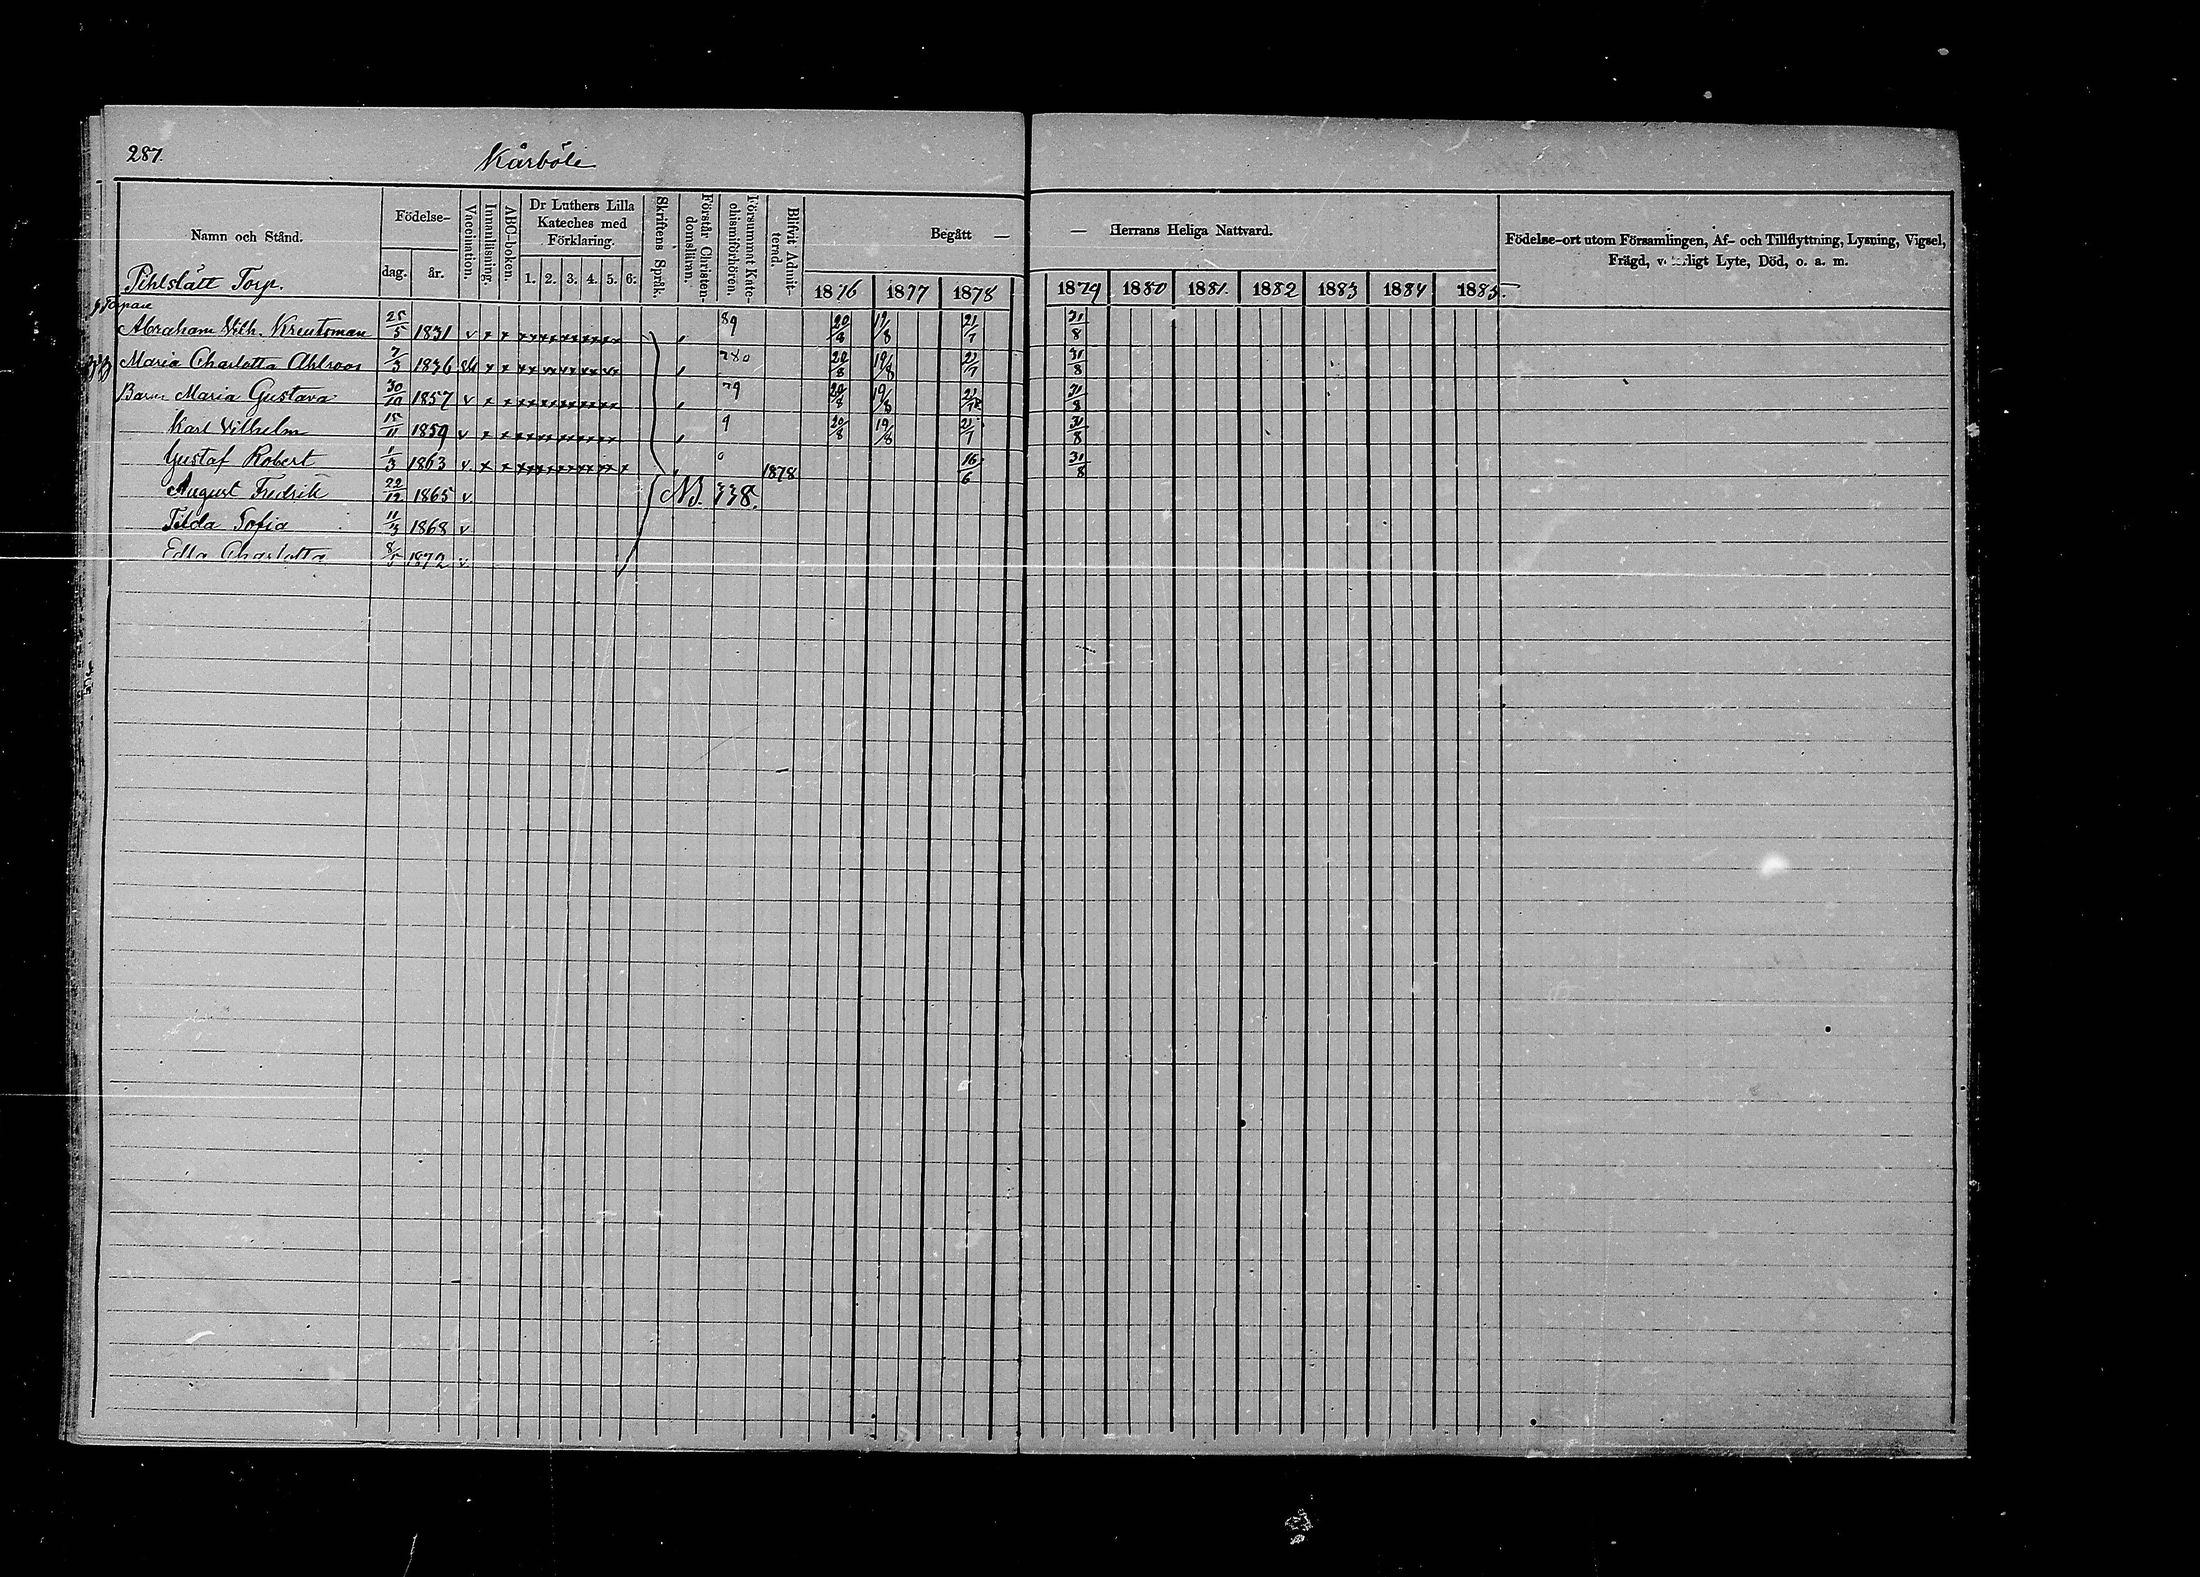 287.
Kårböle
Namn och Stånd.
Födelse-
dag. år.
Vaccination.
Innanläsning.
ABC-boken.
Dr Luthers Lilla Kateches med Förklaring.
1. 2. 3. 4. 5. 6.
Skriftens Språk.
Förstår Christen-domslkunn.
Försummat Kate-chismiförhören.
Blifvit Admit-terad.
Begått —
— Herrans Heliga Nattvard.
1876 1877 1878 1879 1880 1881. 1882 1883 1884 1885.
Födelse-ort utom Församlingen, Af- och Tillflyttning, Lysning, Vigsel,
Frägd, Lyte, Död, o. a. m.
Pihlslätt Torp.
Abraham Vilh. Kreutsman 25/5 1831 v 89 20/8 19/8 21/7 31/8
Maria Charlotta Ahlroos 7/3 1836 780 20/8 19/8 21/7 31/8
Barn Maria Gustava 30/10 1857 v 79 20/8 19/8 31/8
Karl Vilhelm 15/11 1859 v 9 20/8 19/8 21/7 31/8
Gustaf Robert 1/3 1863 v. 0 1878 16/6 31/8
August Fredrik 22/12 1865 v. NB. 338.
Tilda Sofia 11/3 1868 v
Edla Charlotta 8/5 1872 v.